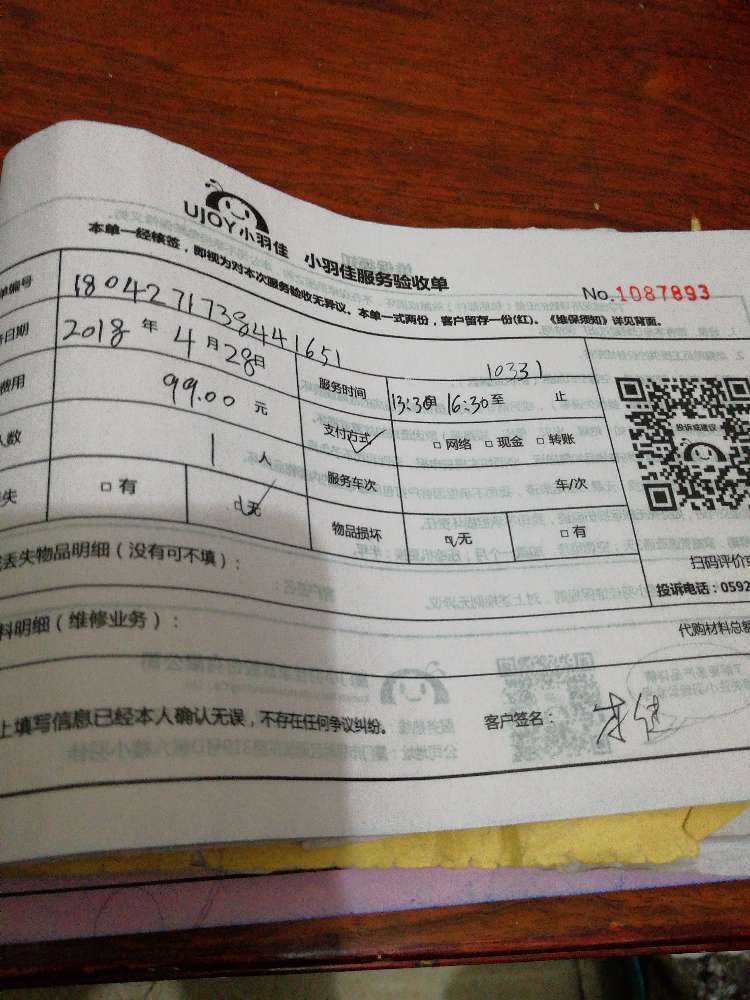 UJOY小羽佳 小羽佳服务验收单
No.1087893
本单一经核签，即视为对本次服务验收无异议。本单一式两份，客户留存一份(红)。《维保须知》详见背面。
单编号 18042717384441651
日期 2018 年 4 月 28 日 服务时间 13:30 16:30 至 止
10331
费用 99.00 元 支付方式 □ 网络 □ 现金 □ 转账
人数 1 人 服务车次 车/次
投诉或建议
失 □ 有 □ 无 物品损坏 □ 无 □ 有
丢失物品明细（没有可不填）：
扫码评价
投诉电话：0592
料明细（维修业务）：
代购材料总
上填写信息已经本人确认无误，不存在任何争议纠纷。 客户签名：